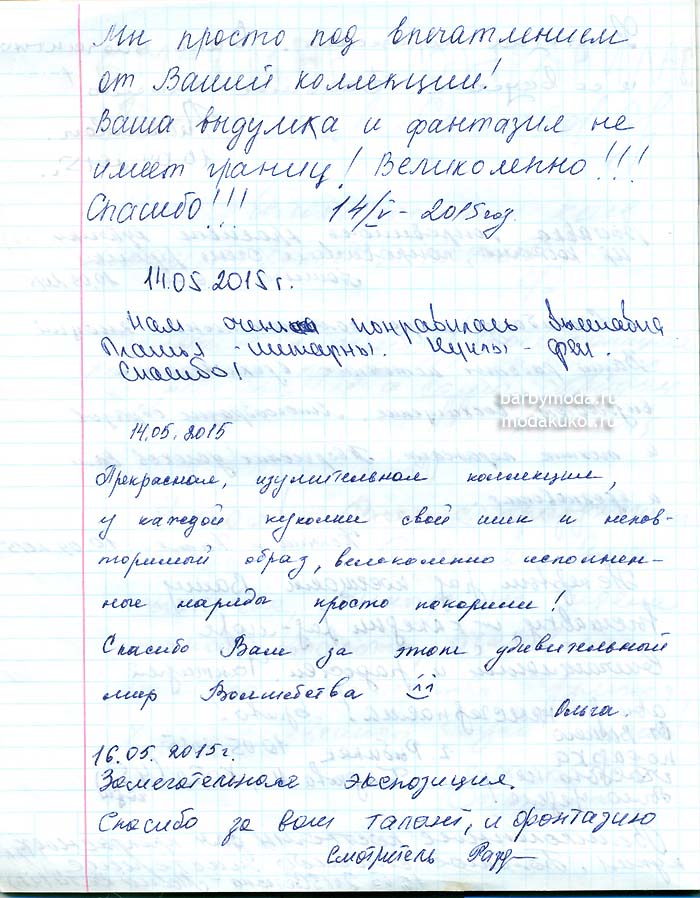 Мы просто под впечатлением
от Вашей коллекции!
Ваша выдумка и фантазия не
имеет границ! Великолепно!!!
Спасибо!!! 14/V - 2015 год.
14.05.2015г.
Нам очень понравилась выставка
Платья - шикарны. Куклы - феи.
Спасибо!
barbymoda.ru
modakukol.ru
14.05.2015
Прекрасная, изумительная коллекция,
у каждой куколки свой шик и непов-
торимый образ, великолепно исполнен-
ные наряды просто покорили!
Спасибо Вам за этот удивительный
мир Волшебства
Ольга.
16.05.2015г.
Замечательная экспозиция.
Спасибо за ваш талант, и фонтазию
Смотритель